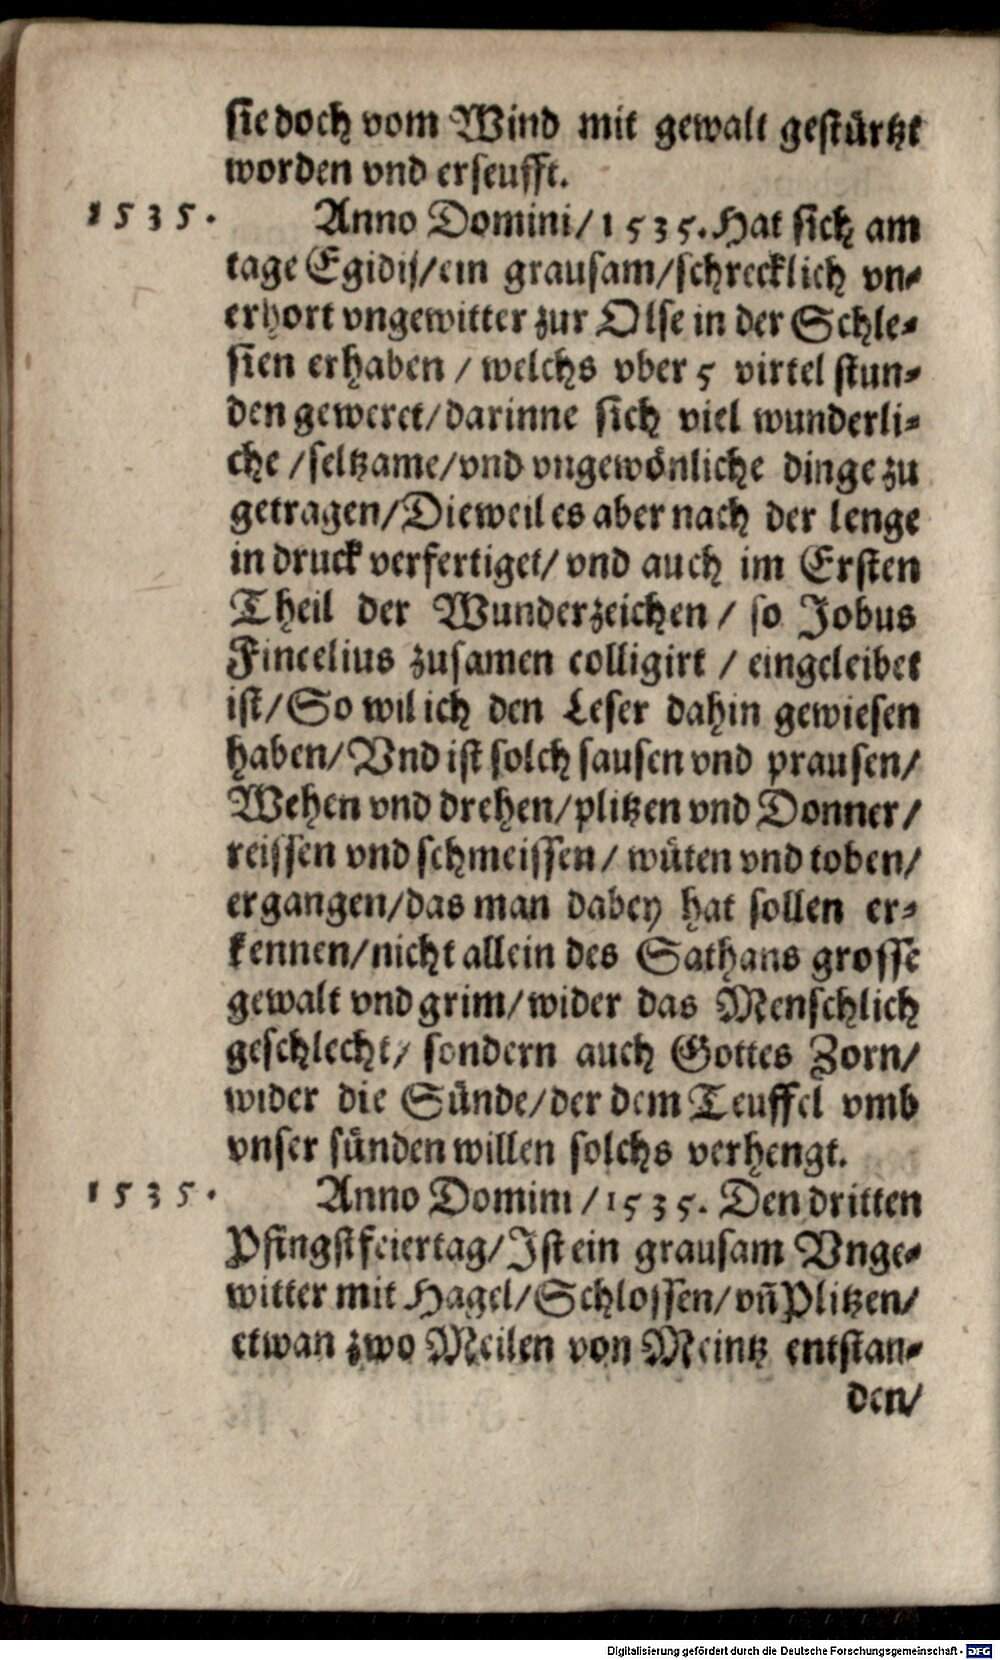 sie doch vom Wind mit gewalt gestürtzt
worden vnd erseufft.
1535. Anno Domini/1535. Hat sich am
tage Egidij/ein grausam/schrecklich vn-
erhort vngewitter zur Olse in der Schle-
sien erhaben / welchs vber 5 virtel stun-
den geweret/darinne sich viel wunderli-
che /seltzame/vnd vngewönliche dinge zu
getragen/Dieweil es aber nach der lenge
in druck verfertiget/ vnd auch im Ersten
Theil der Wunderzeichen / so Jobus
Fincelius zusamen colligirt / eingeleibet
ist/So wil ich den Leser dahin gewiesen
haben/Vnd ist solch sausen vnd prausen/
Wehen vnd drehen/plitzen vnd Donner/
reissen vnd schmeissen/ wüten vnd toben/
ergangen/das man dabey hat sollen er-
kennen/nicht allein des Sathans grosse
gewalt vnd grim/wider das Menschlich
geschlecht/ sondern auch Gottes Zorn/
wider die Sünde/der dem Teuffel vmb
vnser sünden willen solchs verhengt.
1535. Anno Domini /1535. Den dritten
Pfingstfeiertag/Ist ein grausam Vnge-
witter mit Hagel/Schlossen/vñ Plitzen/
etwan zwo Meilen von Meintz entstan-
den/
Digitalisierung gefördert durch die Deutsche Forschungsgemeinschaft - DFG